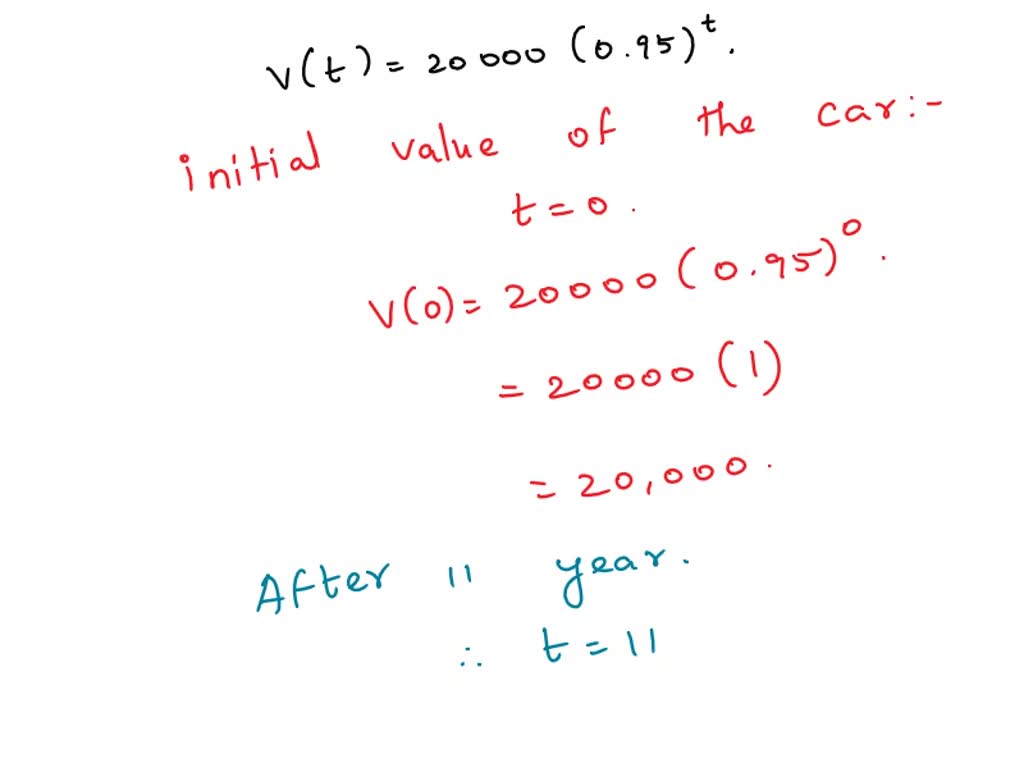 v(t) = 20000 (0.95)^t.
initial value of the car:-
t = 0.
V(0) = 20000 (0.95)^0.
= 20000 (1)
= 20,000.
After 11 year.
∴ t = 11